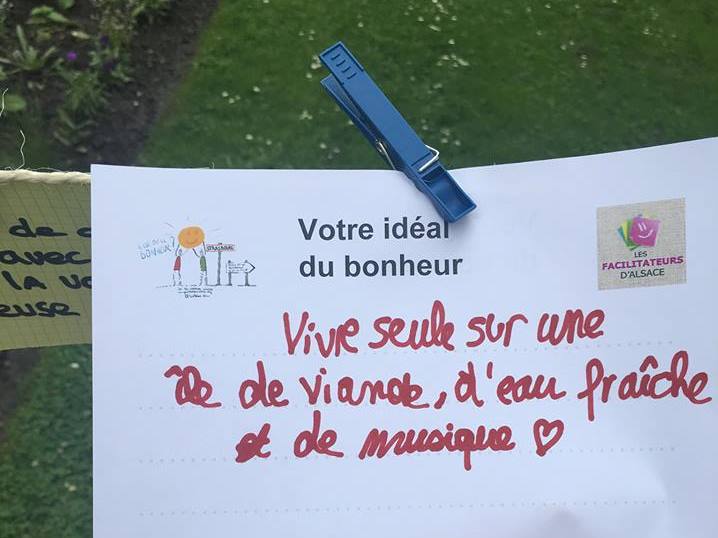 de
avec
LA
euse
BONHEUR
STRASBOURG
Votre idéal
du bonheur
LES
FACILITATEURS
D'ALSACE
Vivre seule sur une
île de viande, d'eau fraîche
et de musique ♡